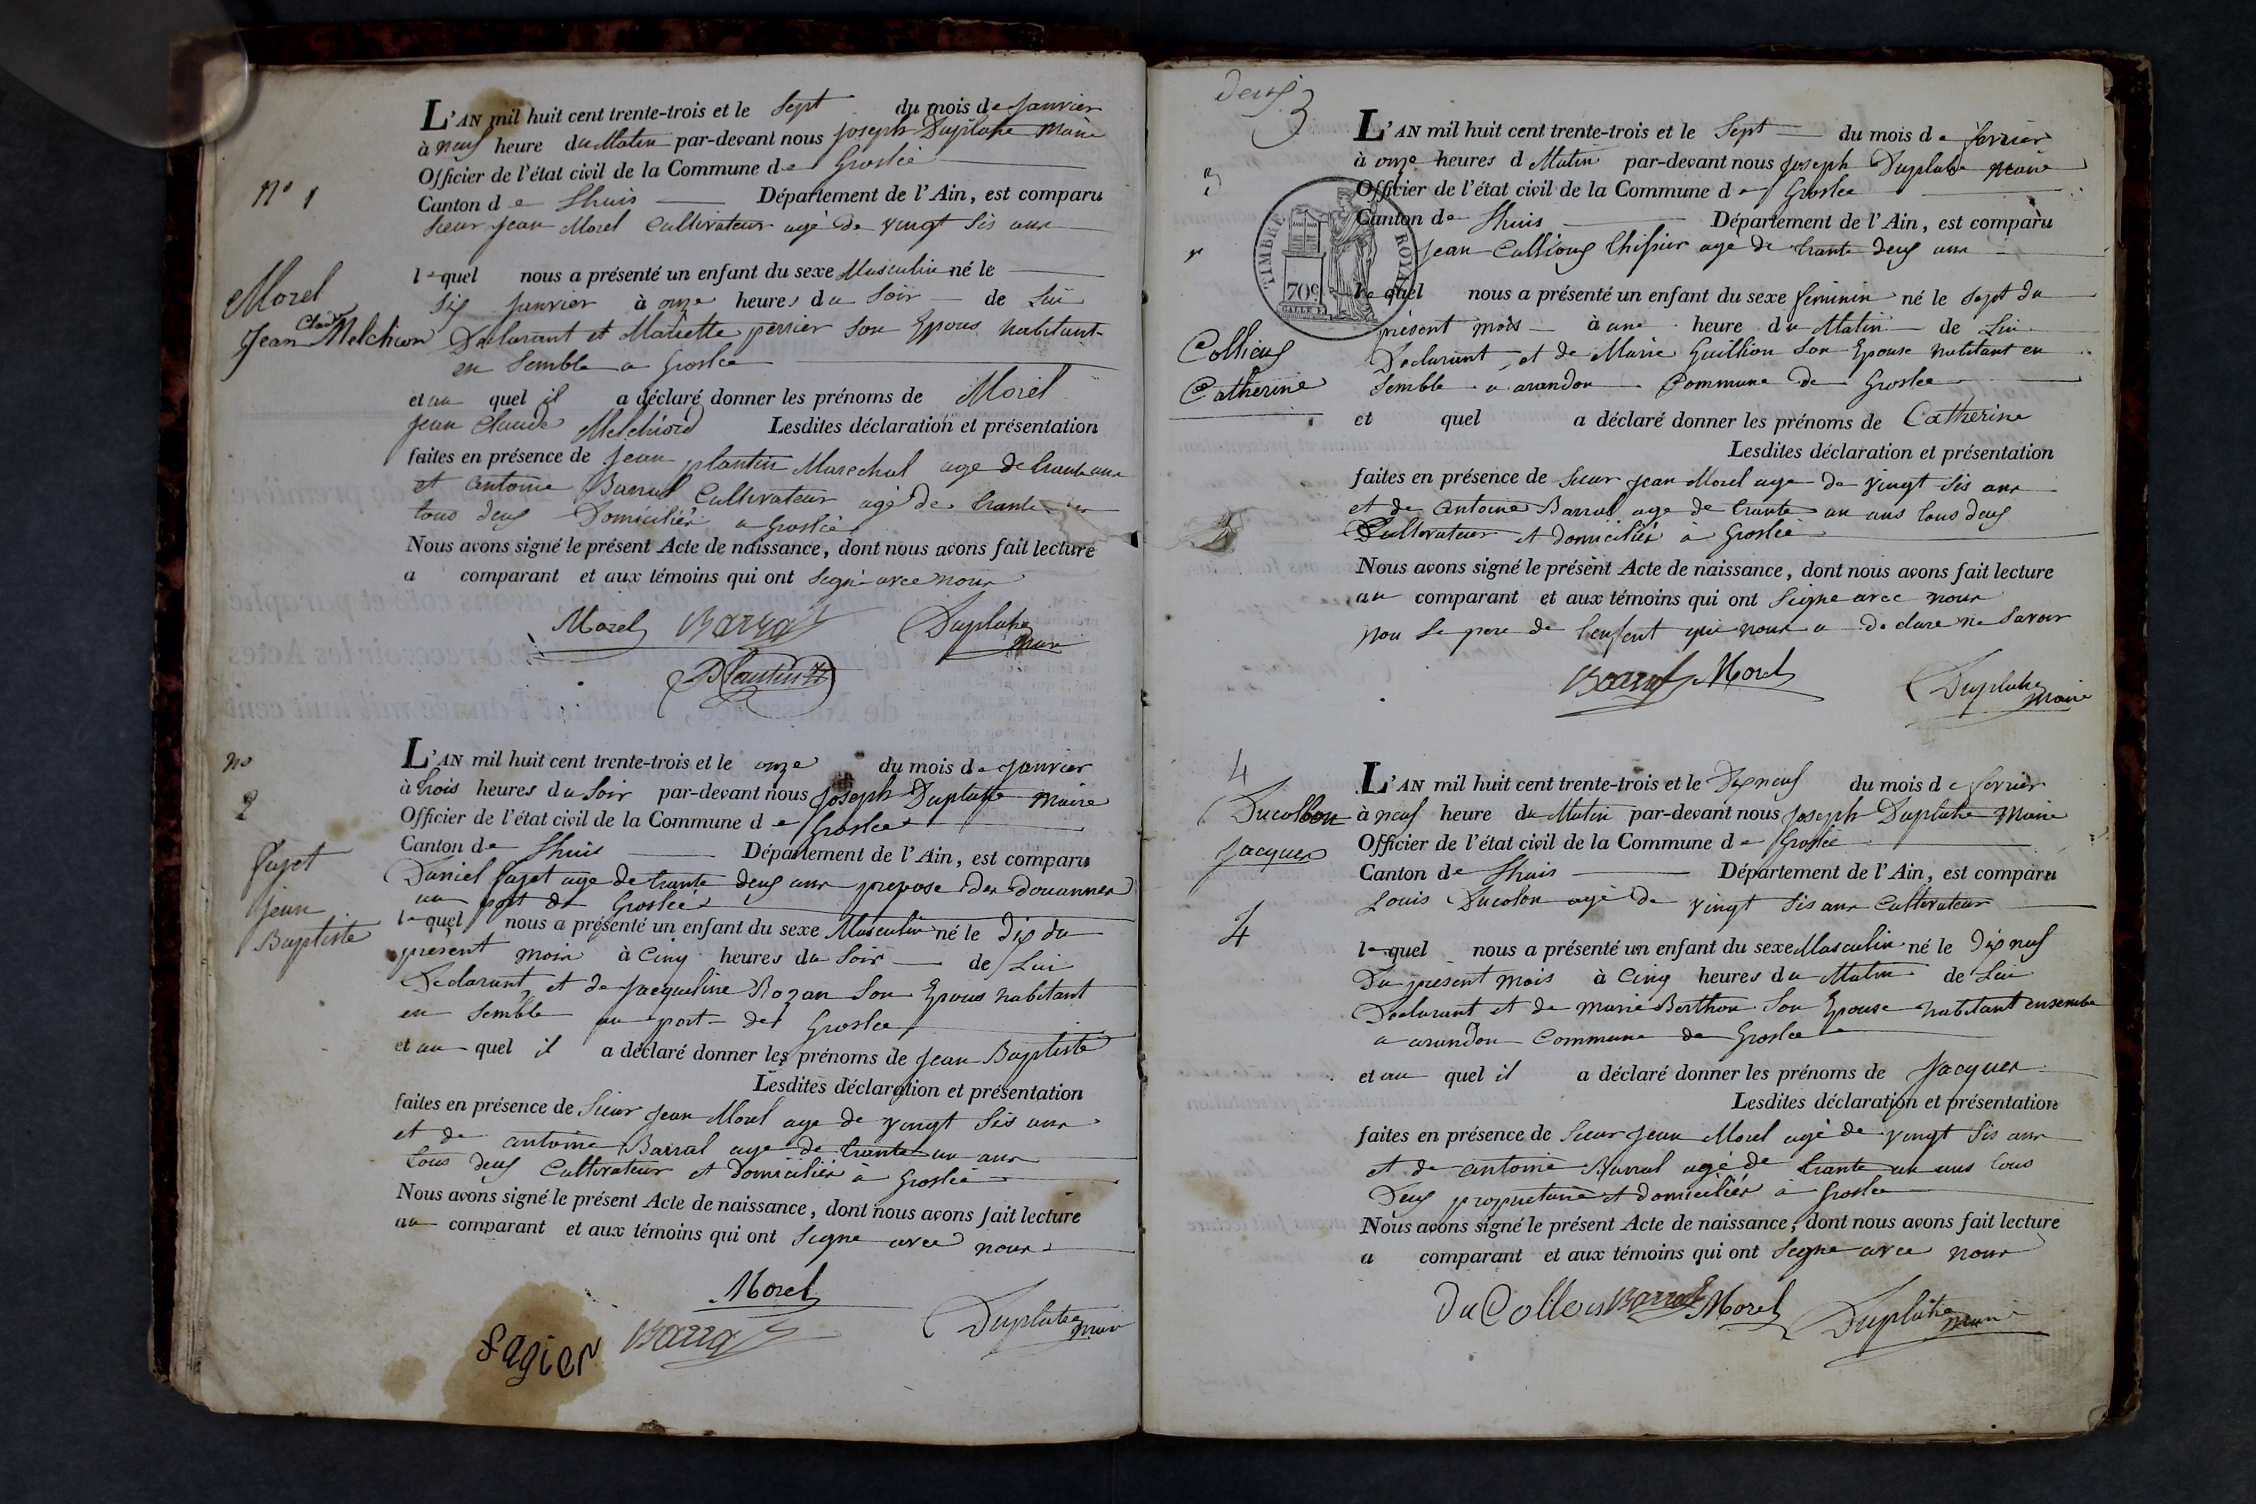 N° 1
Morel
Jean Claude Melchion
L'AN mil huit cent trente-trois et le Sept du mois de Janvier
à neuf heure du Matin par-devant nous Joseph Duplatre Maire
Officier de l'état civil de la Commune de Groslée
Canton de Lhuis Département de l'Ain, est comparu
Sieur Jean Morel Cultivateur agé de vingt Sis ans
lequel nous a présenté un enfant du sexe Masculin né le
Sis Janvier à onze heures du Soir de Lui
Declarant et Mariette perrier Son Epous habitant
en Semble a Groslee
et au quel il a déclaré donner les prénoms de Morel
Jean Claude Melchiord Lesdites déclaration et présentation
faites en présence de Jean plantin Marechal age de trante ans
et antoine Barral Cultivateur agé de trante
tous deus Domiciliés a Groslée
Nous avons signé le présent Acte de naissance, dont nous avons fait lecture
a comparant et aux témoins qui ont Signé avec nous
Morel Barral Duplatre maire
Plantin
no 2
fajet
jean
Baptiste
L'AN mil huit cent trente-trois et le onze du mois de Janvier
à trois heures du Soir par-devant nous Joseph Duplatre Maire
Officier de l'état civil de la Commune de Groslee
Canton de Lhuis Département de l'Ain, est comparu
Daniel fajet age de trante deus ans prepose des douannes
au port de Groslee
lequel nous a présenté un enfant du sexe Masculin né le Dix du
present mois à Cinq heures du Soir de Lui
Declarant et de Jacqueline Rozan Son Epous habitant
en Semble au port de Groslee
et au quel il a déclaré donner les prénoms de Jean Baptiste
Lesdites déclaration et présentation
faites en présence de Sieur Jean Morel age de vingt Sis ans
et de antoine Barral age de trante un ans
tous deus Cultivateur et Domiciliés à Groslée
Nous avons signé le présent Acte de naissance, dont nous avons fait lecture
au comparant et aux témoins qui ont Signe avec nous
Morel
fagier Barral Duplatre maire
deus
3
Collious
Catherine
TIMBRE ROYAL
70c
L'AN mil huit cent trente-trois et le Sept du mois de fevrier
à onze heures d Matin par-devant nous Joseph Duplatre maire
Officier de l'état civil de la Commune de Groslee
Canton de Lhuis Département de l'Ain, est comparu
Jean Collious age de trante deus ans
lequel nous a présenté un enfant du sexe feminin né le Sept du
présent mois à une heure du Matin de Lui
Declarant et de Marie Guillion Son Epouse habitant en
Semble a arandon Commune de Groslee
et quel a déclaré donner les prénoms de Catherine
Lesdites déclaration et présentation
faites en présence de Sieur Jean Morel age de vingt Sis ans
et de antoine Barral age de trante un ans tous deus
Cultivateur et domiciliés à Groslée
Nous avons signé le présent Acte de naissance, dont nous avons fait lecture
au comparant et aux témoins qui ont Signe avec nous
non Le pere de lenfent qui nous a declare ne Savoir
Barral Morel Duplatre maire
4
Ducollon
Jacques
4
L'AN mil huit cent trente-trois et le Dix neuf du mois de fevrier
à neuf heure du Matin par-devant nous Joseph Duplatre Maire
Officier de l'état civil de la Commune de Groslée
Canton de Lhuis Département de l'Ain, est comparu
Louis Ducolon agé de vingt Sis ans Cultivateur
lequel nous a présenté un enfant du sexe Masculin né le dix neuf
Du présent mois à Cinq heures du Matin de Lui
Declarant et de marie Berthon Son Epouse habitant ensemble
a arandon Commune de Groslee
et au quel il a déclaré donner les prénoms de Jacques
Lesdites déclaration et présentation
faites en présence de Sieur Jean Morel agé de vingt Sis ans
et de antoine Barral agé de trante un ans tous
Deus proprietaire et domiciliés à Groslee
Nous avons signé le présent Acte de naissance, dont nous avons fait lecture
a comparant et aux témoins qui ont Signe avec nous
Barral Morel Duplatre maire